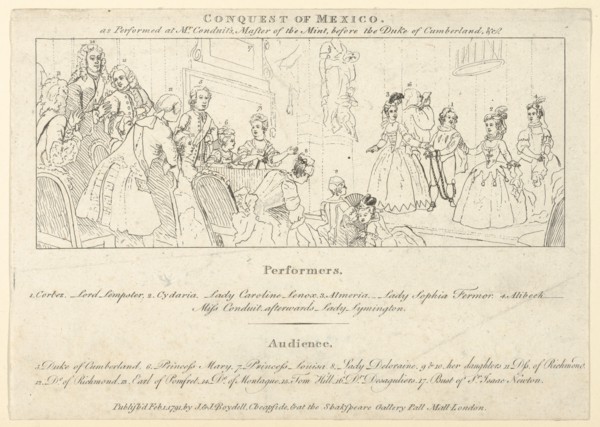 CONQUEST OF MEXICO.
as Performed at Mr. Conduit's, Master of the Mint, before the Duke of Cumberland, &c.
Performers.
1. Cortez Lord Lempster, 2. Cydaria, Lady Caroline Lenox, 3. Almeria Lady Sophia Fermor, 4. Alibech
Miss Conduit, afterwards Lady Lymington.
Audience.
5. Duke of Cumberland, 6. Princess Mary, 7. Princess Louisa 8. Lady Deloraine, 9 & 10. her daughters 11. Dss. of Richmond
12. D. of Richmond, 13. Earl of Pomfret, 14. D. of Montague, 15. Tom Hill, 16. Dr. Desaguliers, 17. Bust of Sr. Isaac Newton.
Publish'd Feb. 1, 1792, by J. & J. Boydell, Cheapside, & at the Shakspeare Gallery Pall Mall London.